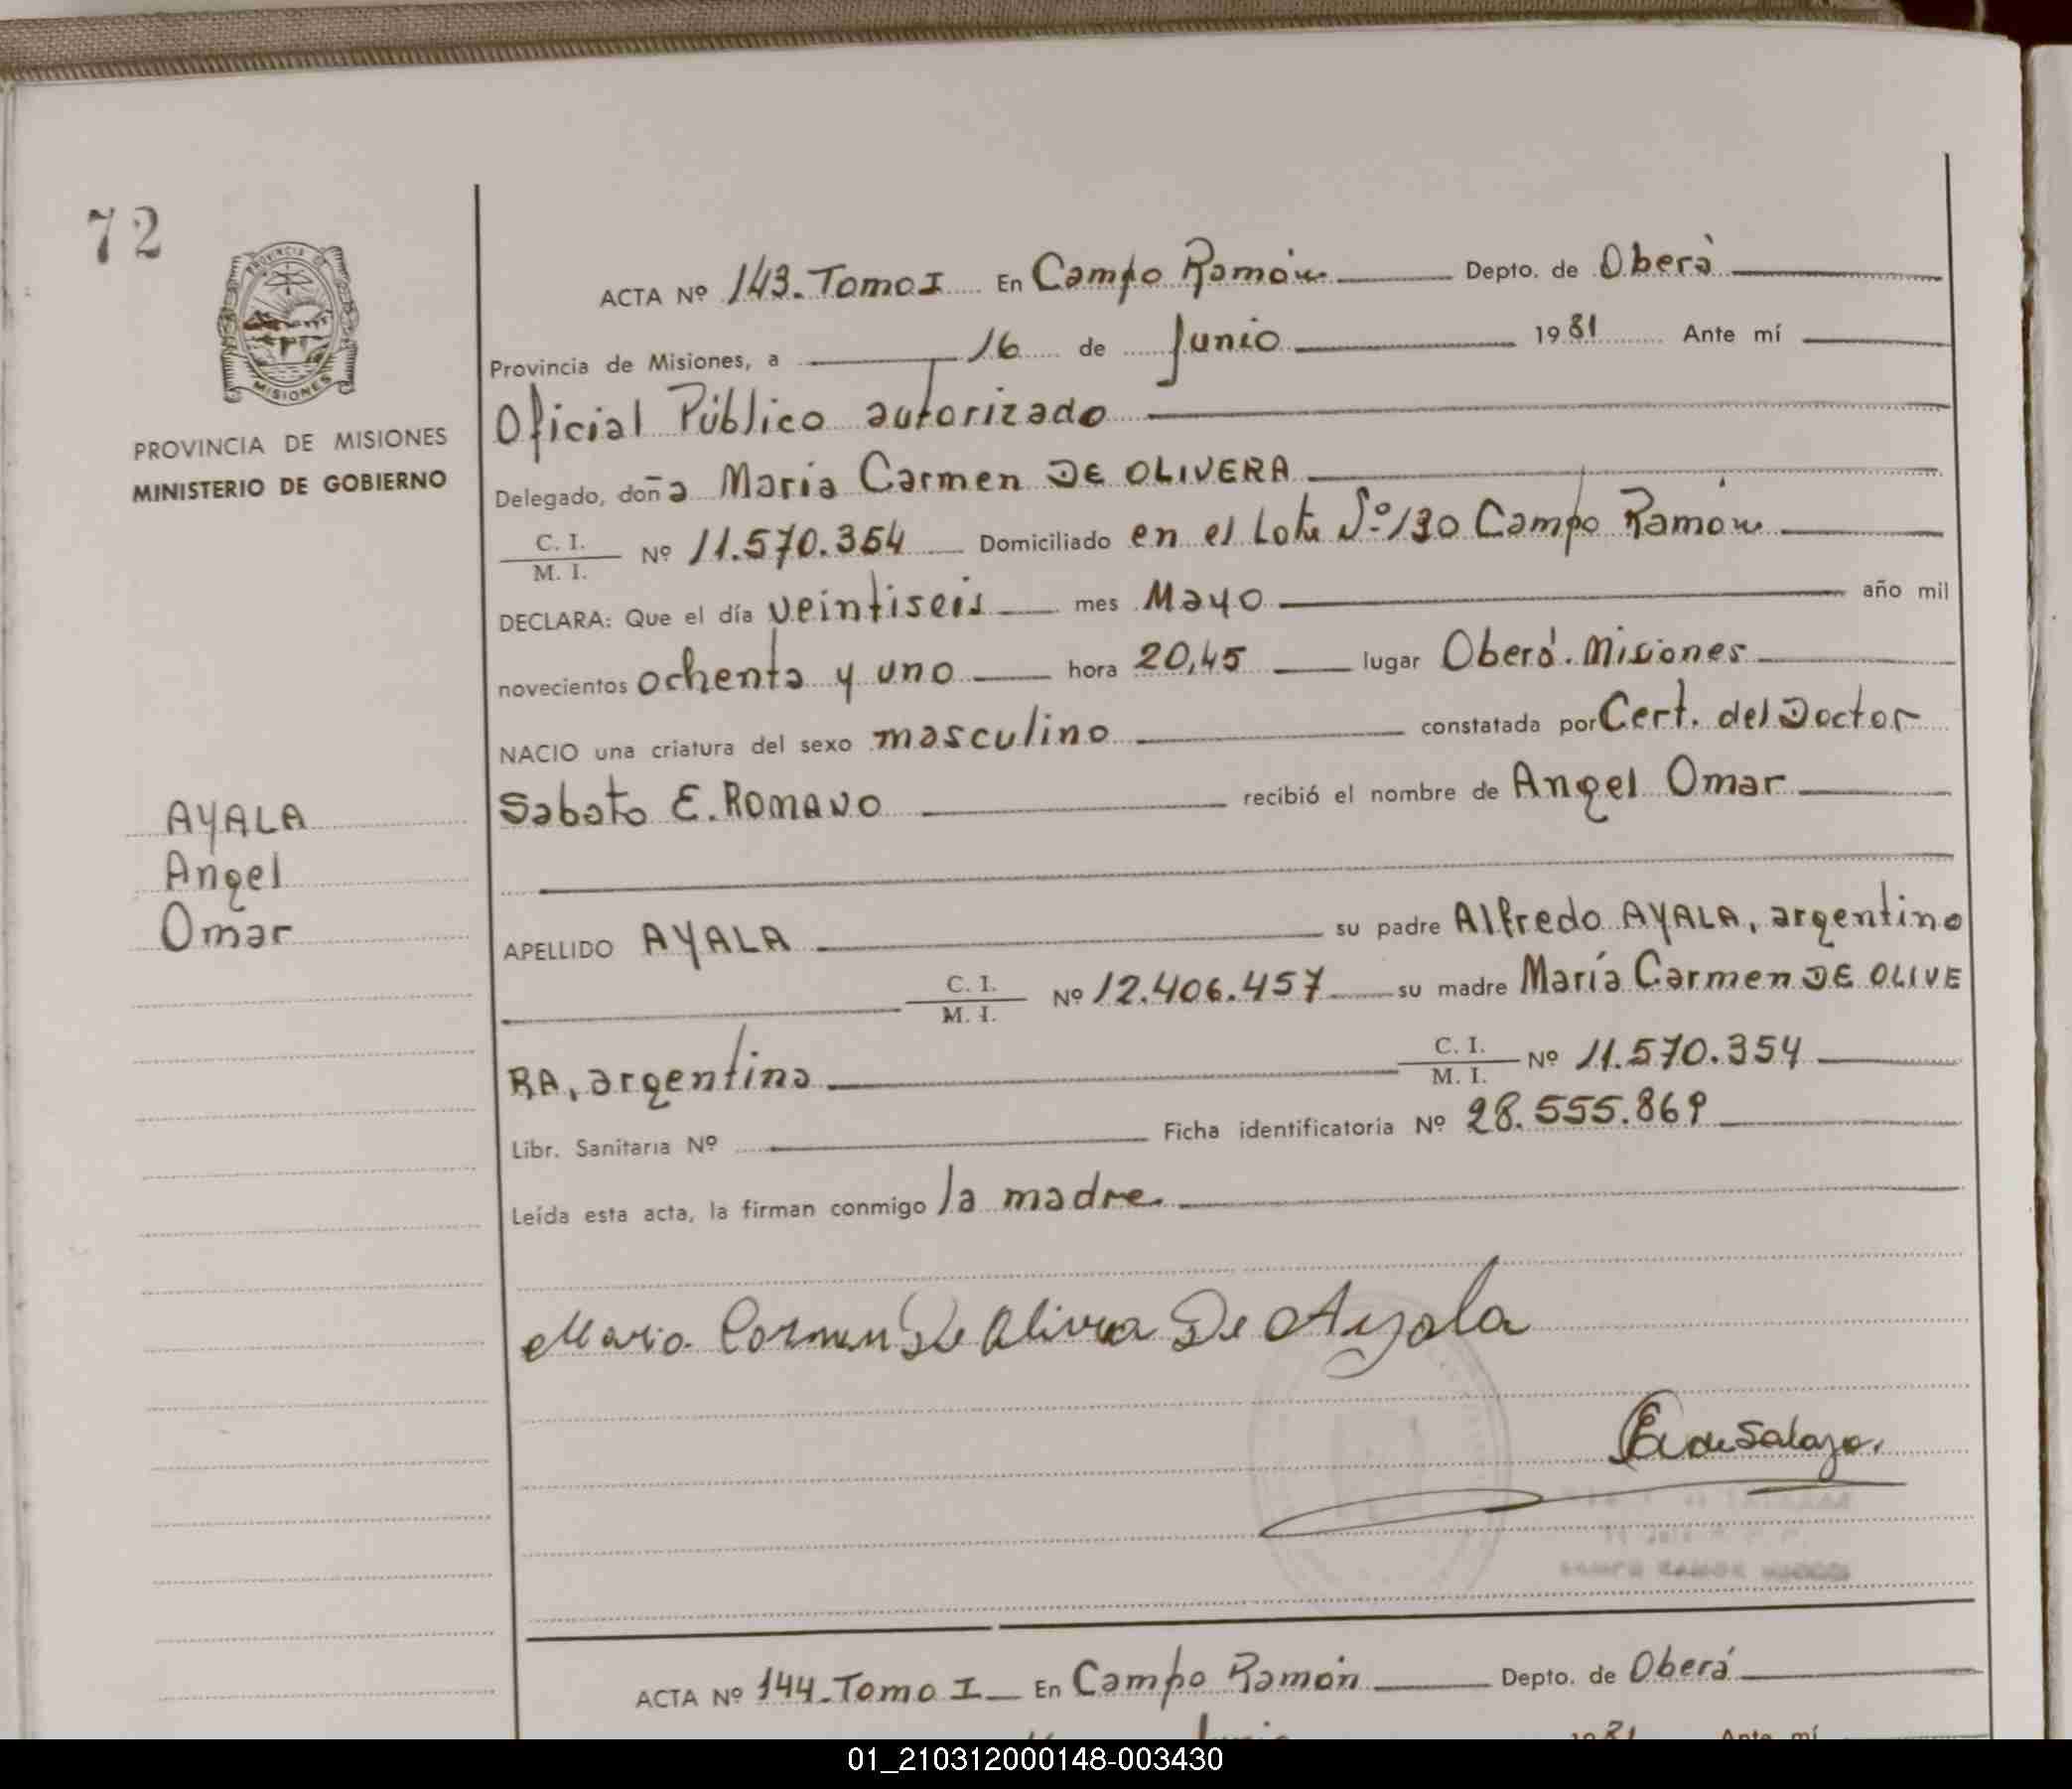 72
PROVINCIA DE MISIONES
PROVINCIA DE MISIONES
MINISTERIO DE GOBIERNO
ACTA Nº 143. Tomo I En Campo Ramón Depto. de Oberá
Provincia de Misiones, a 16 de Junio 1981 Ante mí
Oficial Público autorizado
Delegado, doña María Carmen DE OLIVERA
C. I.
M. I. Nº 11.570.354 Domiciliado en el Lote Nº 130 Campo Ramón
DECLARA: Que el día veintiseis mes Mayo año mil
novecientos ochenta y uno hora 20,45 lugar Oberá. Misiones
NACIO una criatura del sexo masculino constatada por Cert. del Doctor
Sabato E. ROMANO recibió el nombre de Angel Omar
AYALA
Angel
Omar
APELLIDO AYALA su padre Alfredo AYALA, argentino
C. I.
M. I. Nº 12.406.457 su madre María Carmen DE OLIVE
RA, argentina C. I.
M. I. Nº 11.570.354
Libr. Sanitaria Nº Ficha identificatoria Nº 28.555.869
Leída esta acta, la firman conmigo la madre.
Maria Carmen De Olivera De Ayala
de Salazar
ACTA Nº 144. Tomo I En Campo Ramón Depto. de Oberá
Junio 1981 Ante mí
01_210312000148-003430